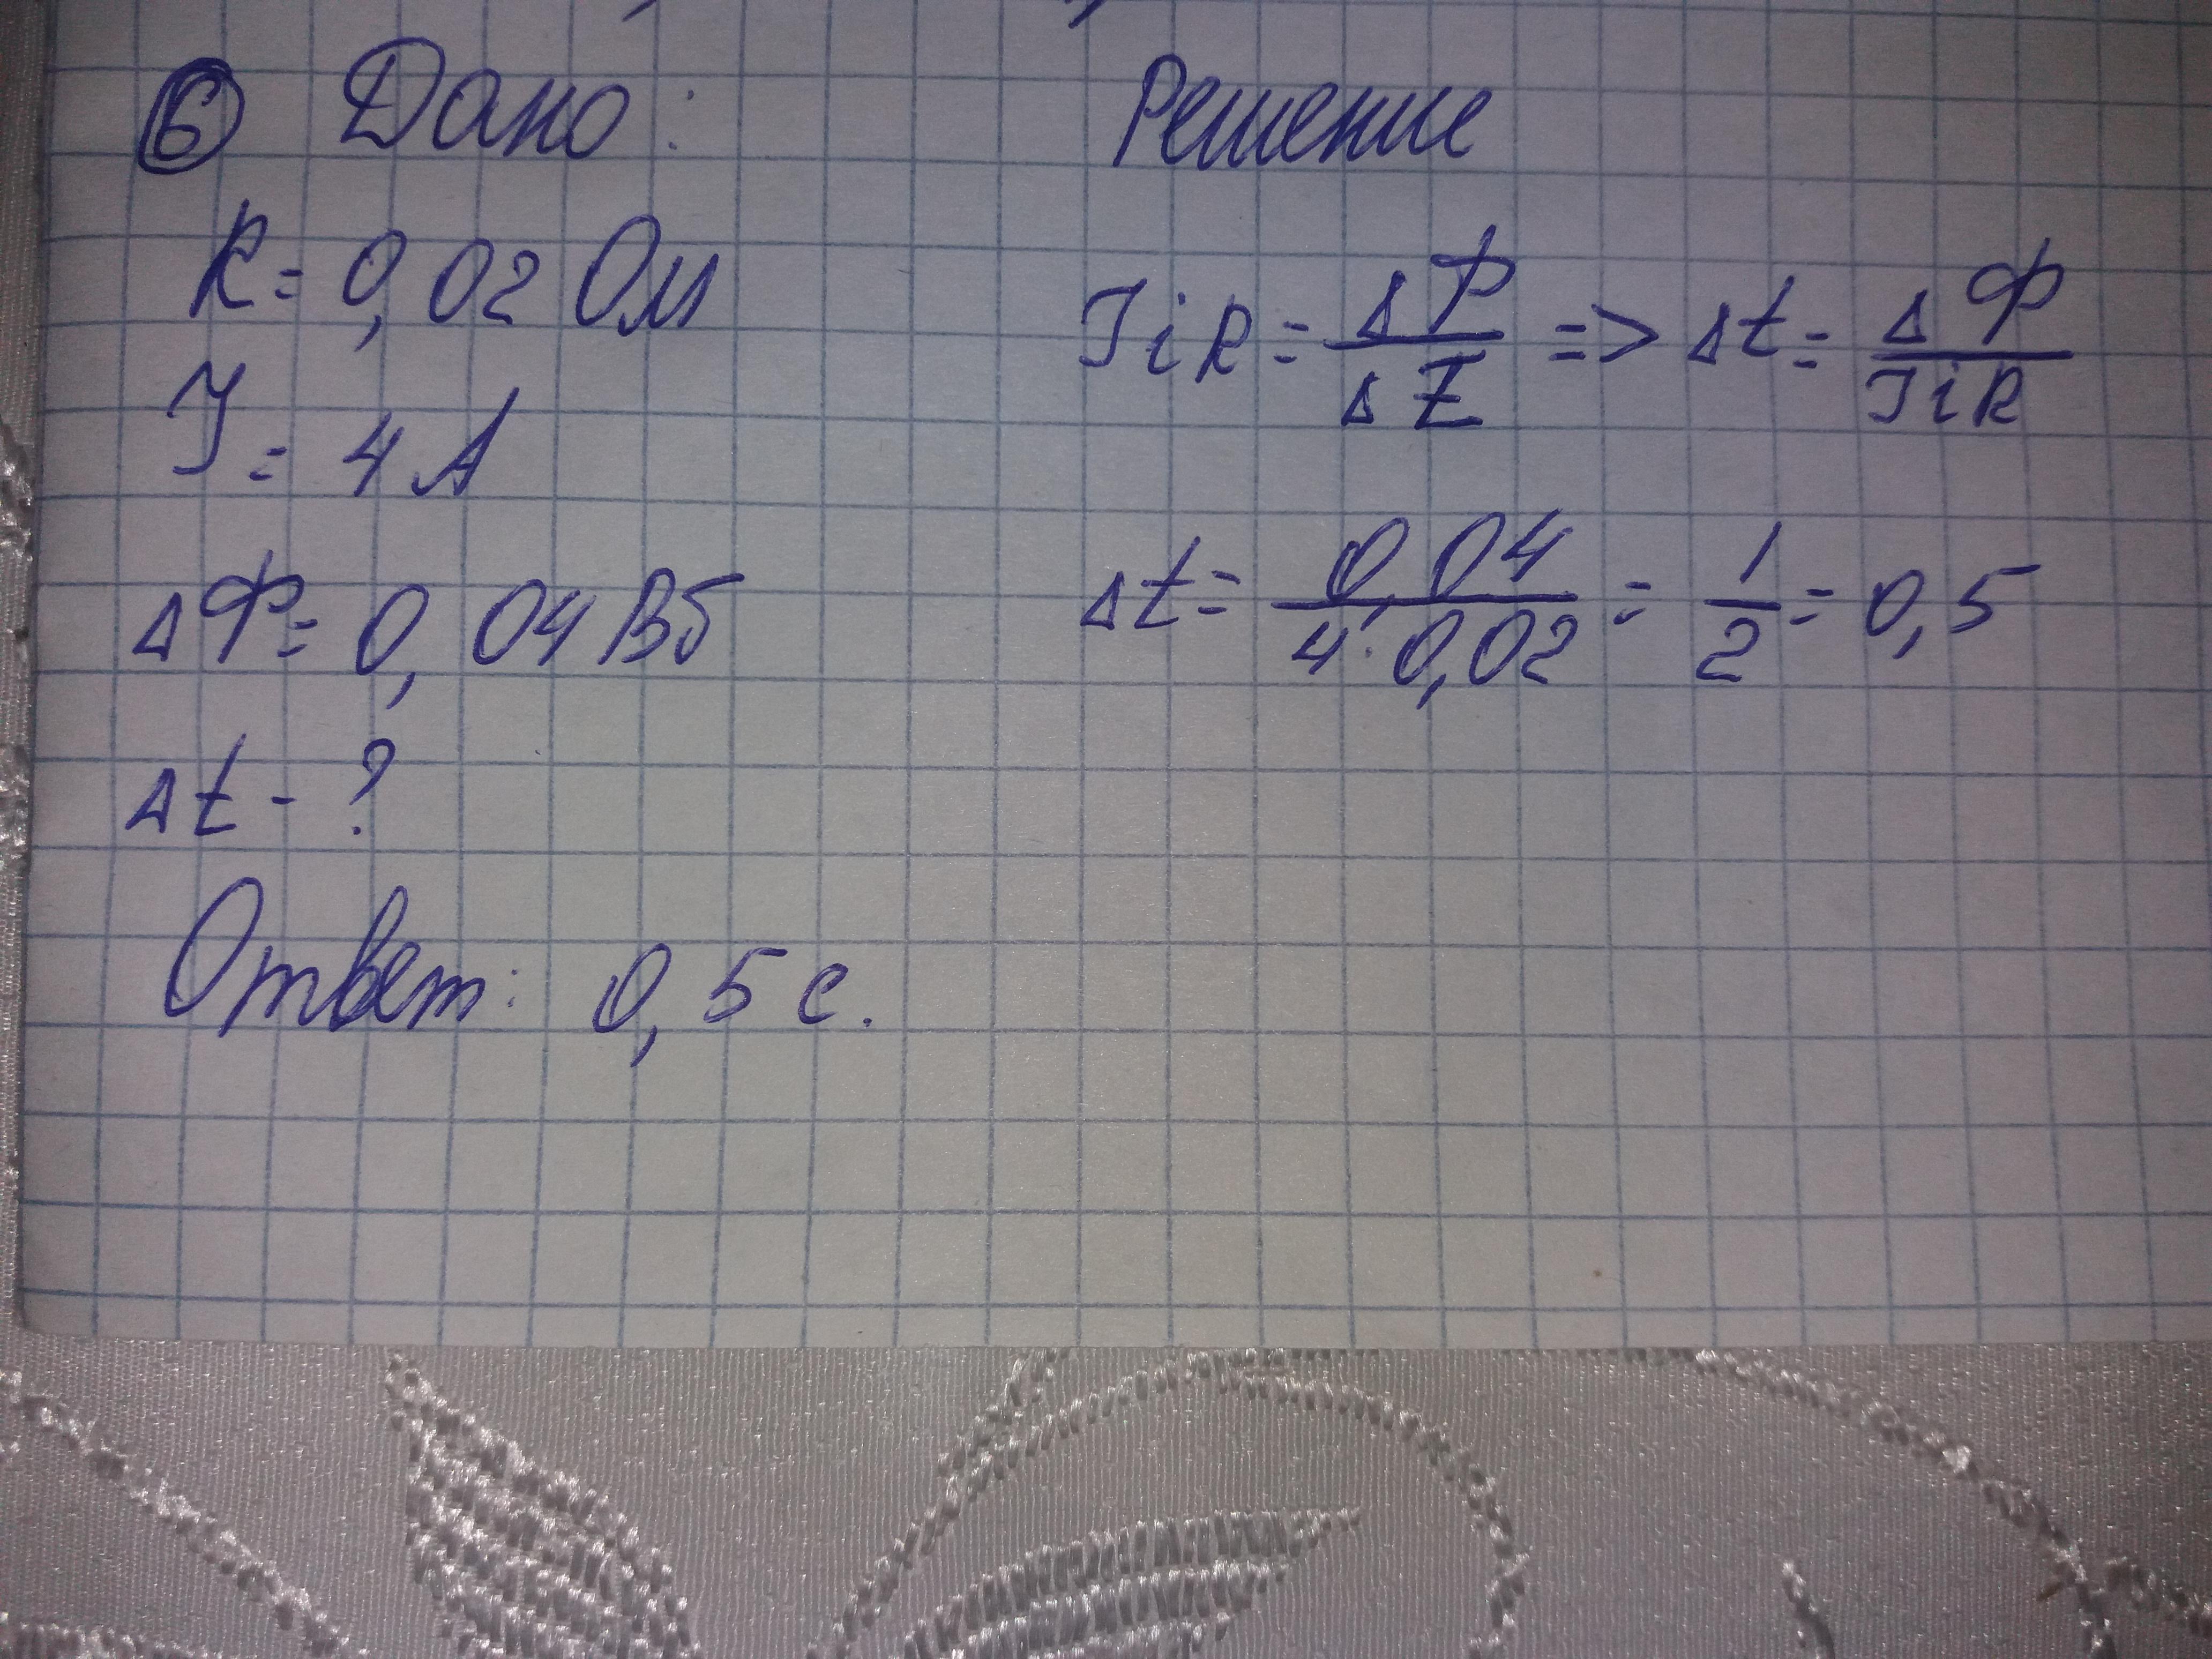 6 Дано:
R = 0,02 Ом
I = 4 А
ΔΦ = 0,04 Вб
Δt - ?
Ответ: 0,5 с.
Решение
IiR = ΔΦ/Δt => Δt = ΔΦ/IiR
Δt = 0,04/4·0,02 = 1/2 = 0,5